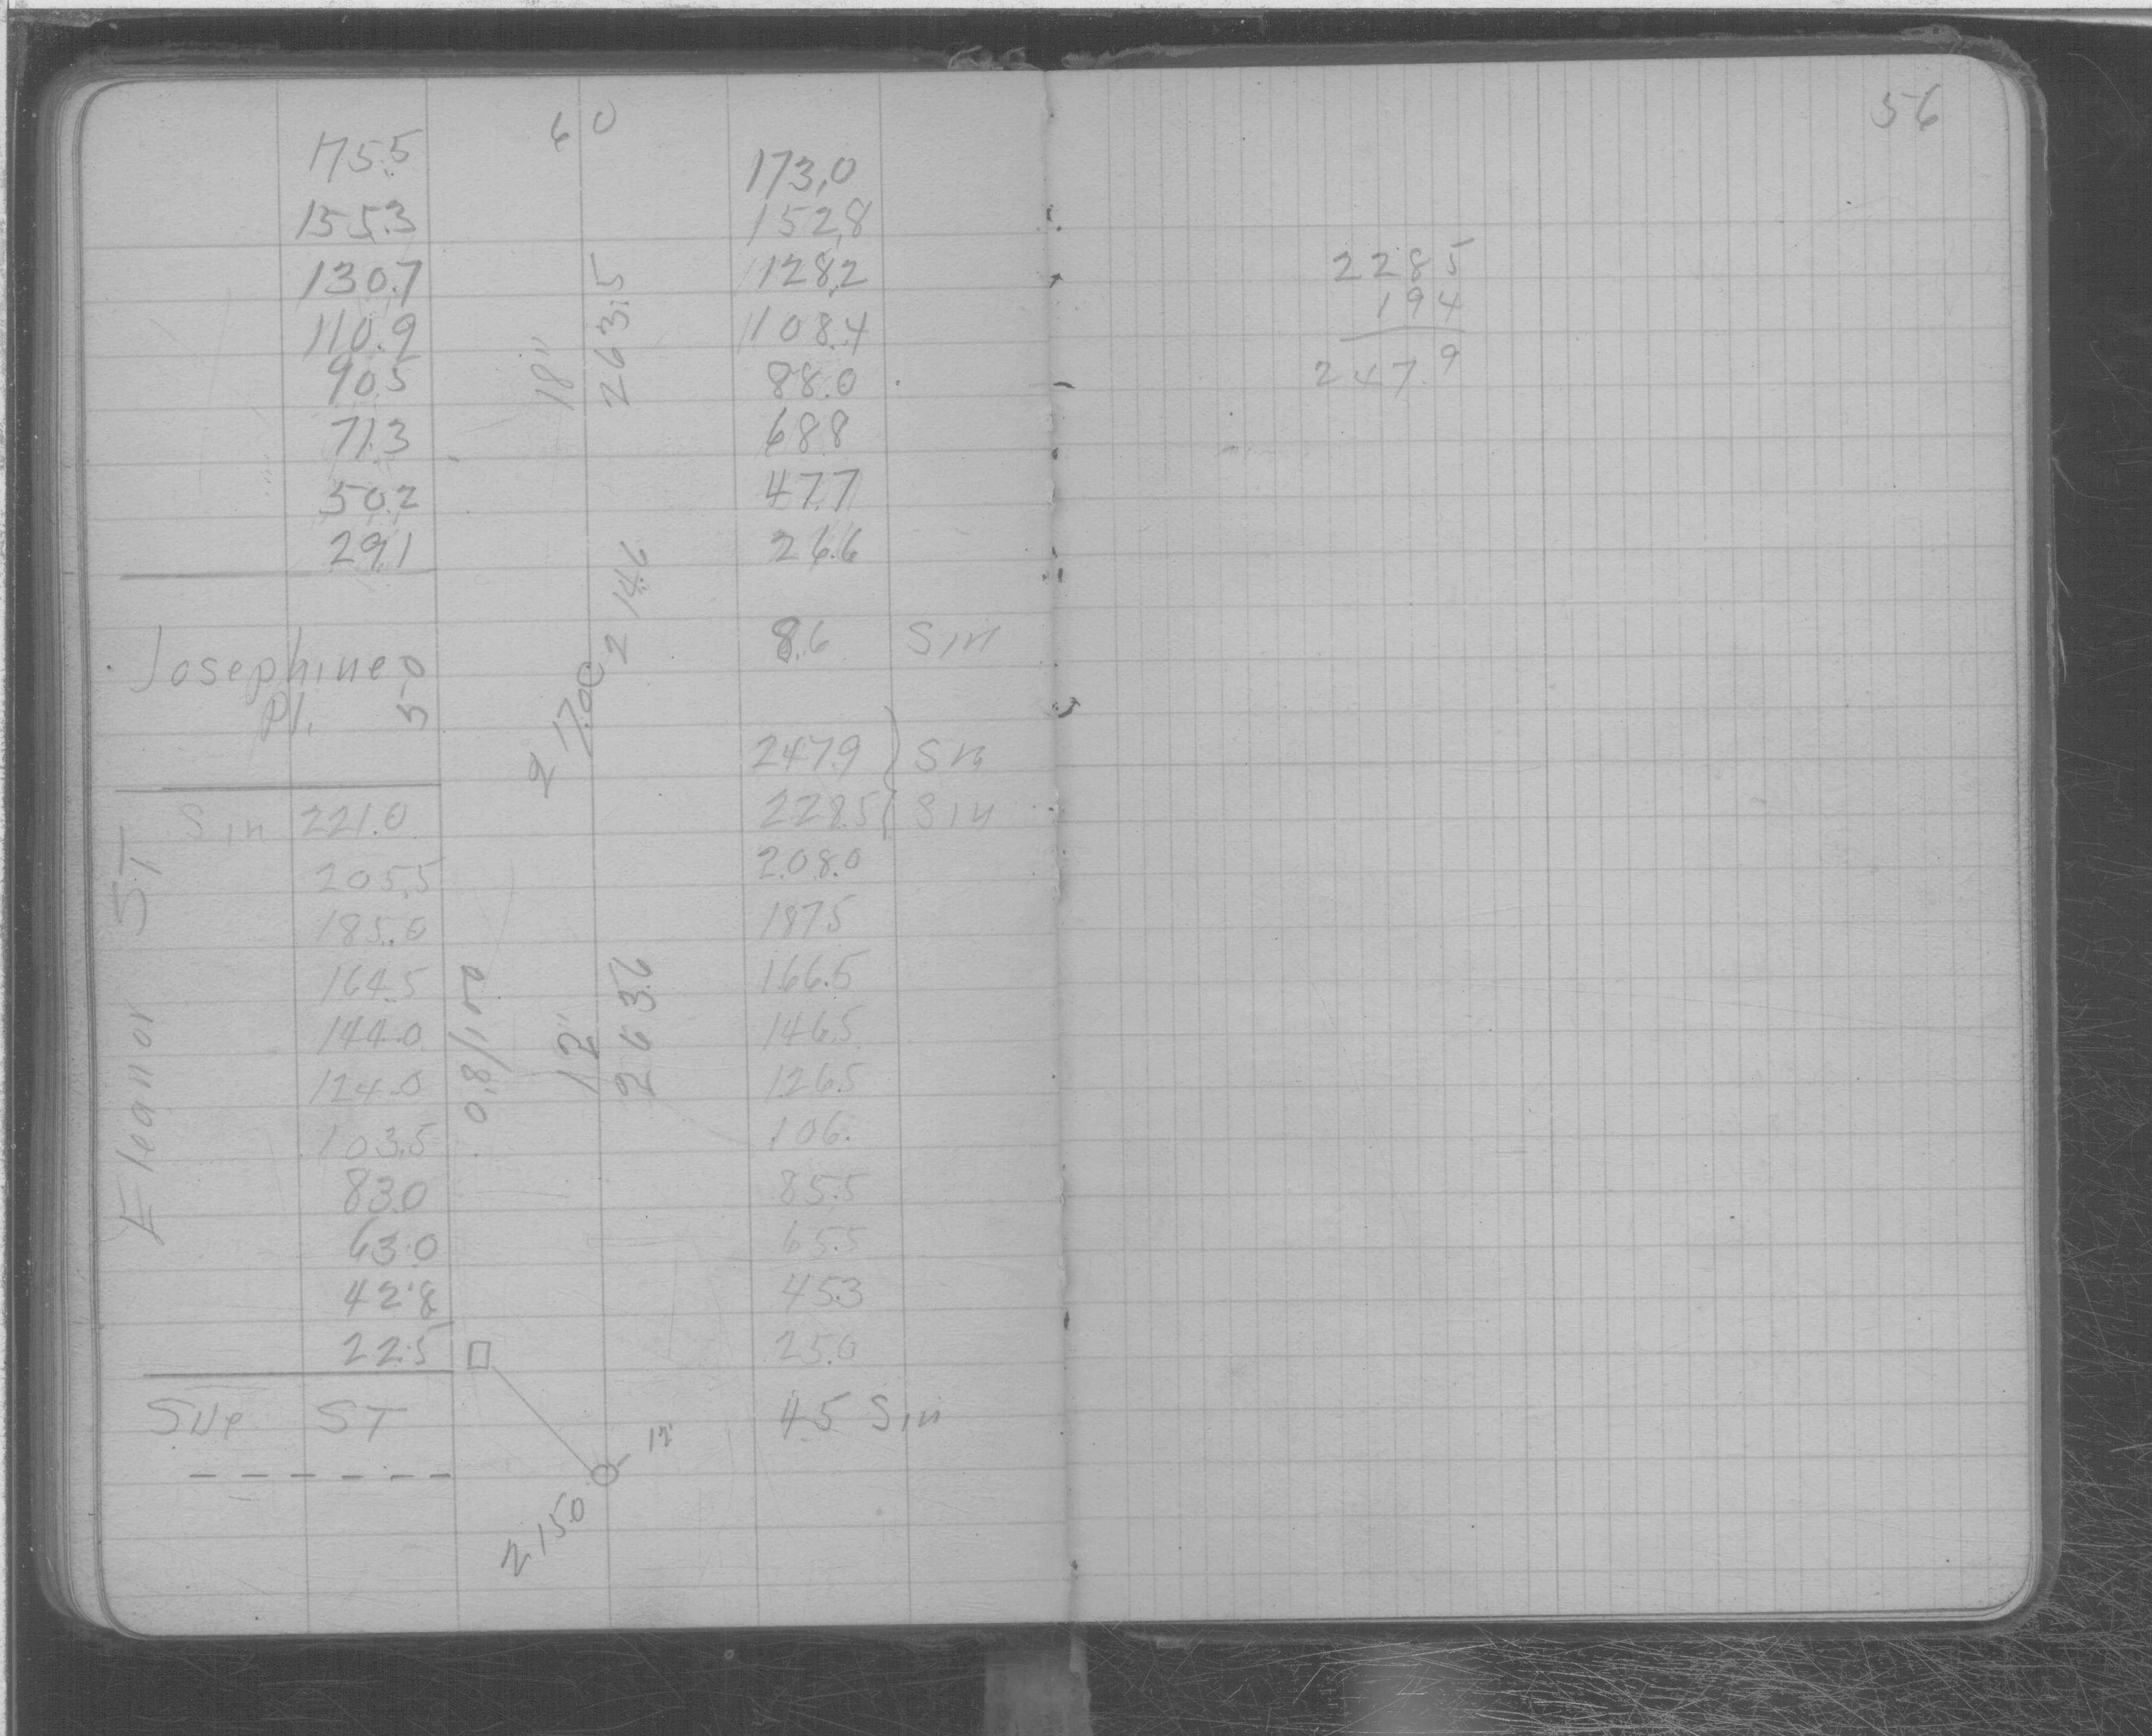 60
175.5 173.0
155.3 152.8
130.7 128.2
110.9 108.4
90.5 88.0
71.3 68.8
50.2 47.7
29.1 26.6
18"
263.5
214.6
Josephine 50 8.6 Sin
Pl.
217.00
247.9 Sin
Sin 221.0 228.5 Sin
205.5 208.0
185.0 187.5
164.5 166.5
144.0 146.5
124.0 126.5
103.5 106.
83.0 85.5
63.0 65.5
42.8 45.3
22.5 25.0
Eleanor ST
0.8/100
12"
263.6
Sue ST 4.5 Sin
12"
215.0
56
2285
194
247.9